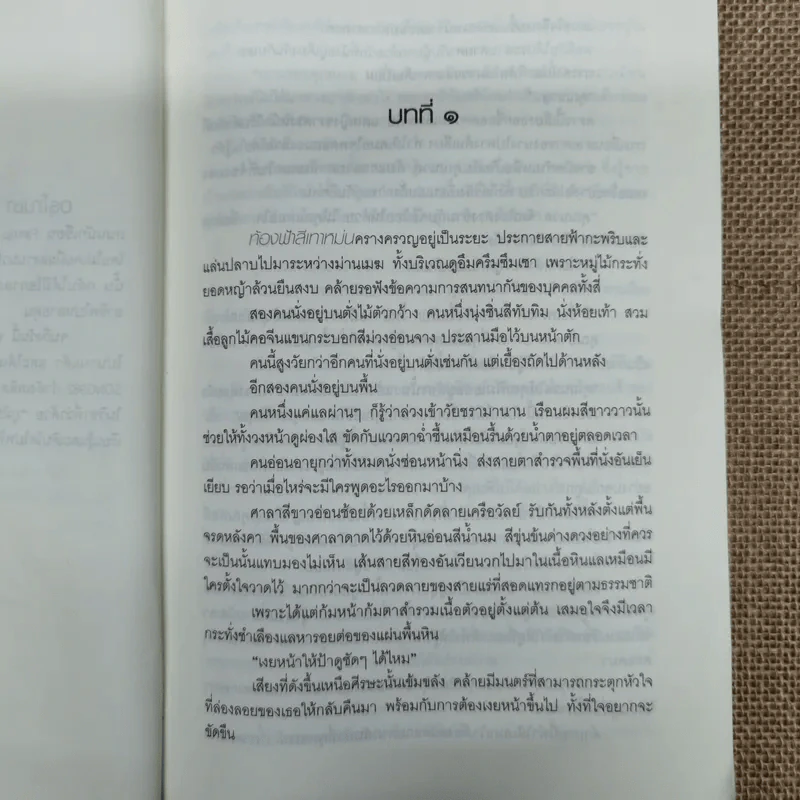 บทที่ ๑
ท้องฟ้าสีเทาหม่นครางครวญอยู่เป็นระยะ ประกายสายฟ้ากะพริบและ
แล่นปลาบไปมาระหว่างม่านเมฆ ทั้งบริเวณดูอึมครึมซึมเซา เพราะหมู่ไม้กระทั่ง
ยอดหญ้าล้วนยืนสงบ คล้ายรอฟังข้อความการสนทนากันของบุคคลทั้งสี่
สองคนนั่งอยู่บนตั่งไม้ตัวกว้าง คนหนึ่งนุ่งซิ่นสีทับทิม นั่งห้อยเท้า สวม
เสื้อลูกไม้คอจีนแขนกระบอกสีม่วงอ่อนจาง ประสานมือไว้บนหน้าตัก
คนนี้สูงวัยกว่าอีกคนที่นั่งอยู่บนตั่งเช่นกัน แต่เยื้องถัดไปด้านหลัง
อีกสองคนนั่งอยู่บนพื้น
คนหนึ่งแค่แลผ่านๆ ก็รู้ว่าล่วงเข้าวัยชรามานาน เรือนผมสีขาววาวนั้น
ช่วยให้ทั้งวงหน้าดูผ่องใส ขัดกับแววตาฉ่ำชื้นเหมือนรื้นด้วยน้ำตาอยู่ตลอดเวลา
คนอ่อนอายุกว่าทั้งหมดนั่งซ่อนหน้านิ่ง ส่งสายตาสำรวจพื้นที่นั่งอันเย็น
เยียบ รอว่าเมื่อไหร่จะมีใครพูดอะไรออกมาบ้าง
ศาลาสีขาวอ่อนช้อยด้วยเหล็กดัดลายเครือวัลย์ รับกันทั้งหลังตั้งแต่พื้น
จรดหลังคา พื้นของศาลาดาดไว้ด้วยหินอ่อนสีน้ำนม สีขุ่นข้นด่างดวงอย่างที่ควร
จะเป็นนั้นแทบมองไม่เห็น เส้นสายสีทองอันเวียนวกไปมาในเนื้อหินแลเหมือนมี
ใครตั้งใจวาดไว้ มากกว่าจะเป็นลวดลายของสายแร่ที่สอดแทรกอยู่ตามธรรมชาติ
เพราะได้แต่ก้มหน้าก้มตาสำรวมเนื้อตัวอยู่ตั้งแต่ต้น เสมอใจจึงมีเวลา
กระทั่งชำเลืองแลหารอยต่อของแผ่นพื้นหิน
“เงยหน้าให้ป้าดูชัดๆ ได้ไหม”
เสียงที่ดังขึ้นเหนือศีรษะนั้นเข้มขลัง คล้ายมีมนตร์ที่สามารถกระตุกหัวใจ
ที่ล่องลอยของเธอให้กลับคืนมา พร้อมกับการต้องเงยหน้าขึ้นไป ทั้งที่ใจอยากจะ
ขัดขืน